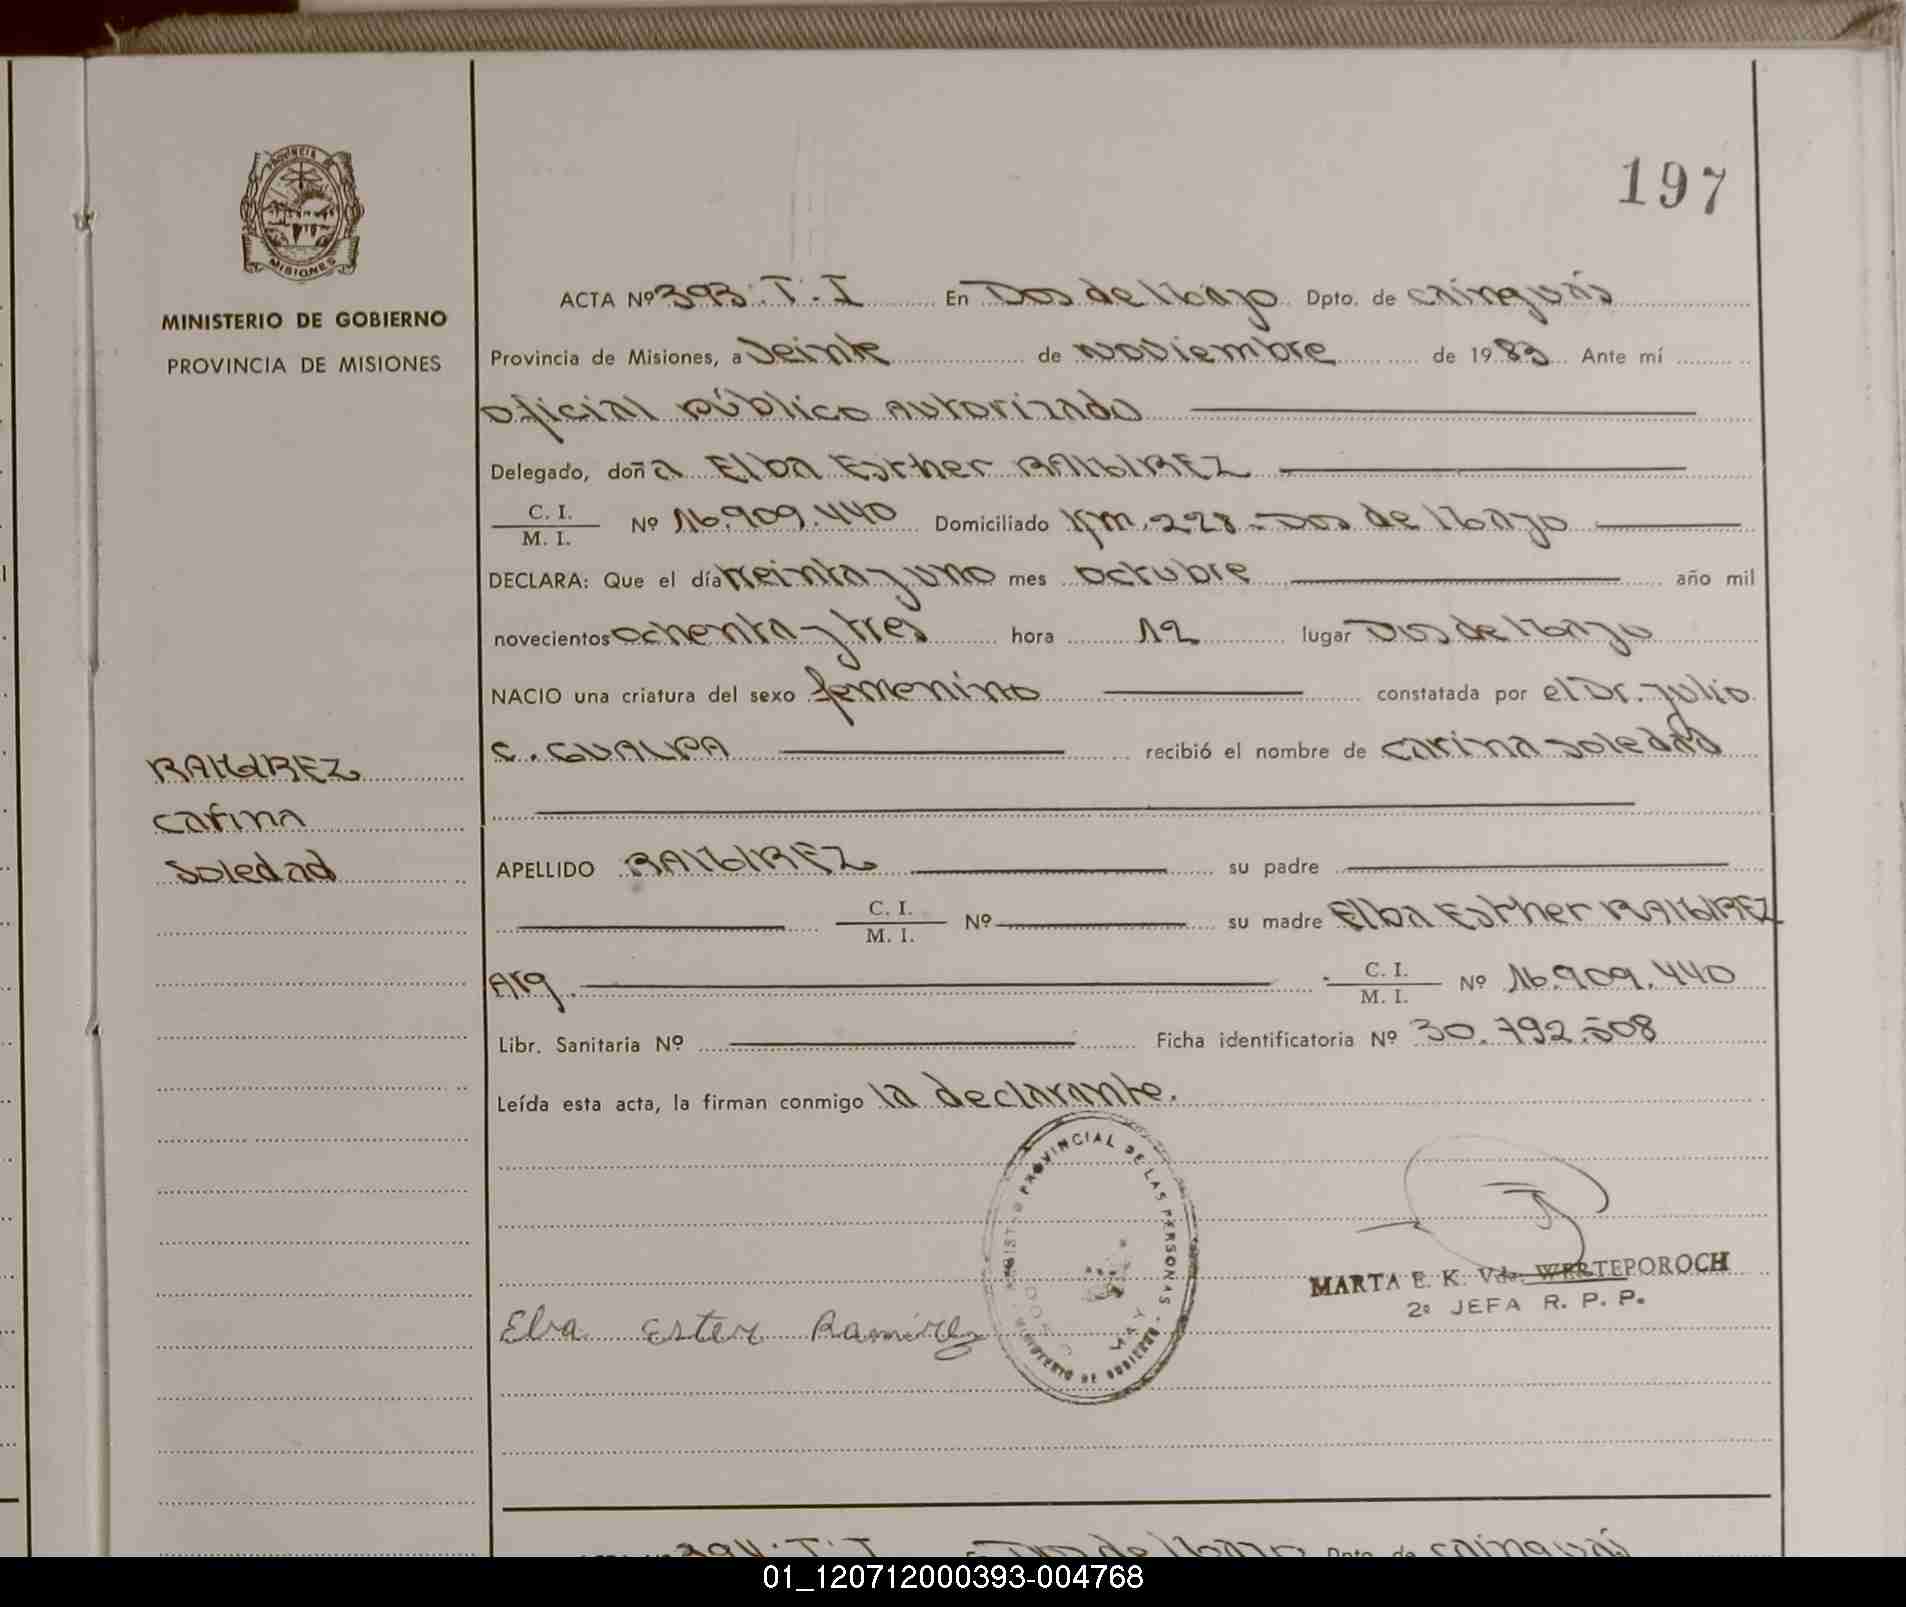 PROVINCIA DE
MISIONES
MINISTERIO DE GOBIERNO
PROVINCIA DE MISIONES
RAMIREZ
Carina
Soledad
197
ACTA Nº 393.T.I En Dos de Mayo Dpto. de Cainguás
Provincia de Misiones, a Veinte de Noviembre de 1983 Ante mí
Oficial público Autorizado
Delegado, doña Elba Esther RAMIREZ
C. I.
M. I. Nº 16.909.440 Domiciliado Km. 228 - Dos de Mayo
DECLARA: Que el día treinta y uno mes Octubre año mil
novecientos Ochenta y tres hora 12 lugar Dos de Mayo
NACIO una criatura del sexo femenino constatada por el Dr. Julio
C. GUALPA recibió el nombre de Carina Soledad
APELLIDO RAMIREZ su padre
C. I.
M. I. Nº su madre Elba Esther RAMIREZ
Arg. C. I.
M. I. Nº 16.909.440
Libr. Sanitaria Nº Ficha identificatoria Nº 30.792.508
Leída esta acta, la firman conmigo la declarante.
REGISTRO PROVINCIAL DE LAS PERSONAS
MINISTERIO DE GOBIERNO
DOS MAY
MARTA E. K. Vda. WERTEPOROCH
2º JEFA R. P. P.
Elva Ester Ramirez
394.T.I En Dos de Mayo Dpto. de Cainguás
01_120712000393-004768